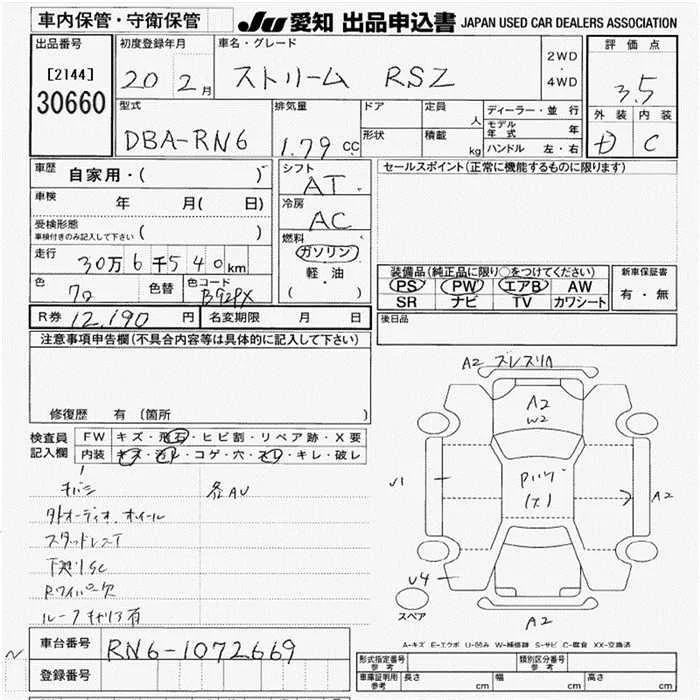 車内保管・守衛保管
JU 愛知 出品申込書 JAPAN USED CAR DEALERS ASSOCIATION
出品番号
[2144]
30660
初度登録年月
20 2月
車名・グレード
ストリーム RSZ
2WD
・
4WD
評価点
3.5
外装 内装
D C
型式
DBA-RN6
排気量
1.79 cc
ドア
定員 人
形状
積載 kg
ディーラー・並行
モデル年式 年
ハンドル 左・右
車歴 自家用・( )
車検 年 月( 日)
受検形態
車検付きのみ記入して下さい ( )
走行 30万6千540km
色
色替
色コード
B92PX
シフト
AT
冷房
AC
燃料
ガソリン
軽・油
( )
セールスポイント(正常に機能するものに限ります)
装備品(純正品に限り○をつけてください)
PS PW エアB AW
SR ナビ TV カワシート
新車保証書
有・無
R券 12,190 円 名変期限 月 日
後日品
注意事項申告欄(不具合内容等は具体的に記入して下さい)
修復歴 有 (箇所 )
検査員記入欄
FW キズ・飛石・ヒビ割・リペア跡・X要
内装 キズ・汚レ・コゲ・穴・スレ・キレ・破レ
各AU
外オーディオ.ホイール
スタッドレスT
下廻りSC
Rワイパー欠
ルーフキャリア有
A2
A2
W2
U1
A2
U4
A2
スペア
A-キズ E-エクボ U-凹み W-補修跡 S-サビ C-腐食 XX-交換済
車台番号 RN6-1072669
登録番号
形式指定番号 参考
類別区分番号 参考
車庫証明用 参考 長さ cm 幅 cm 高さ cm